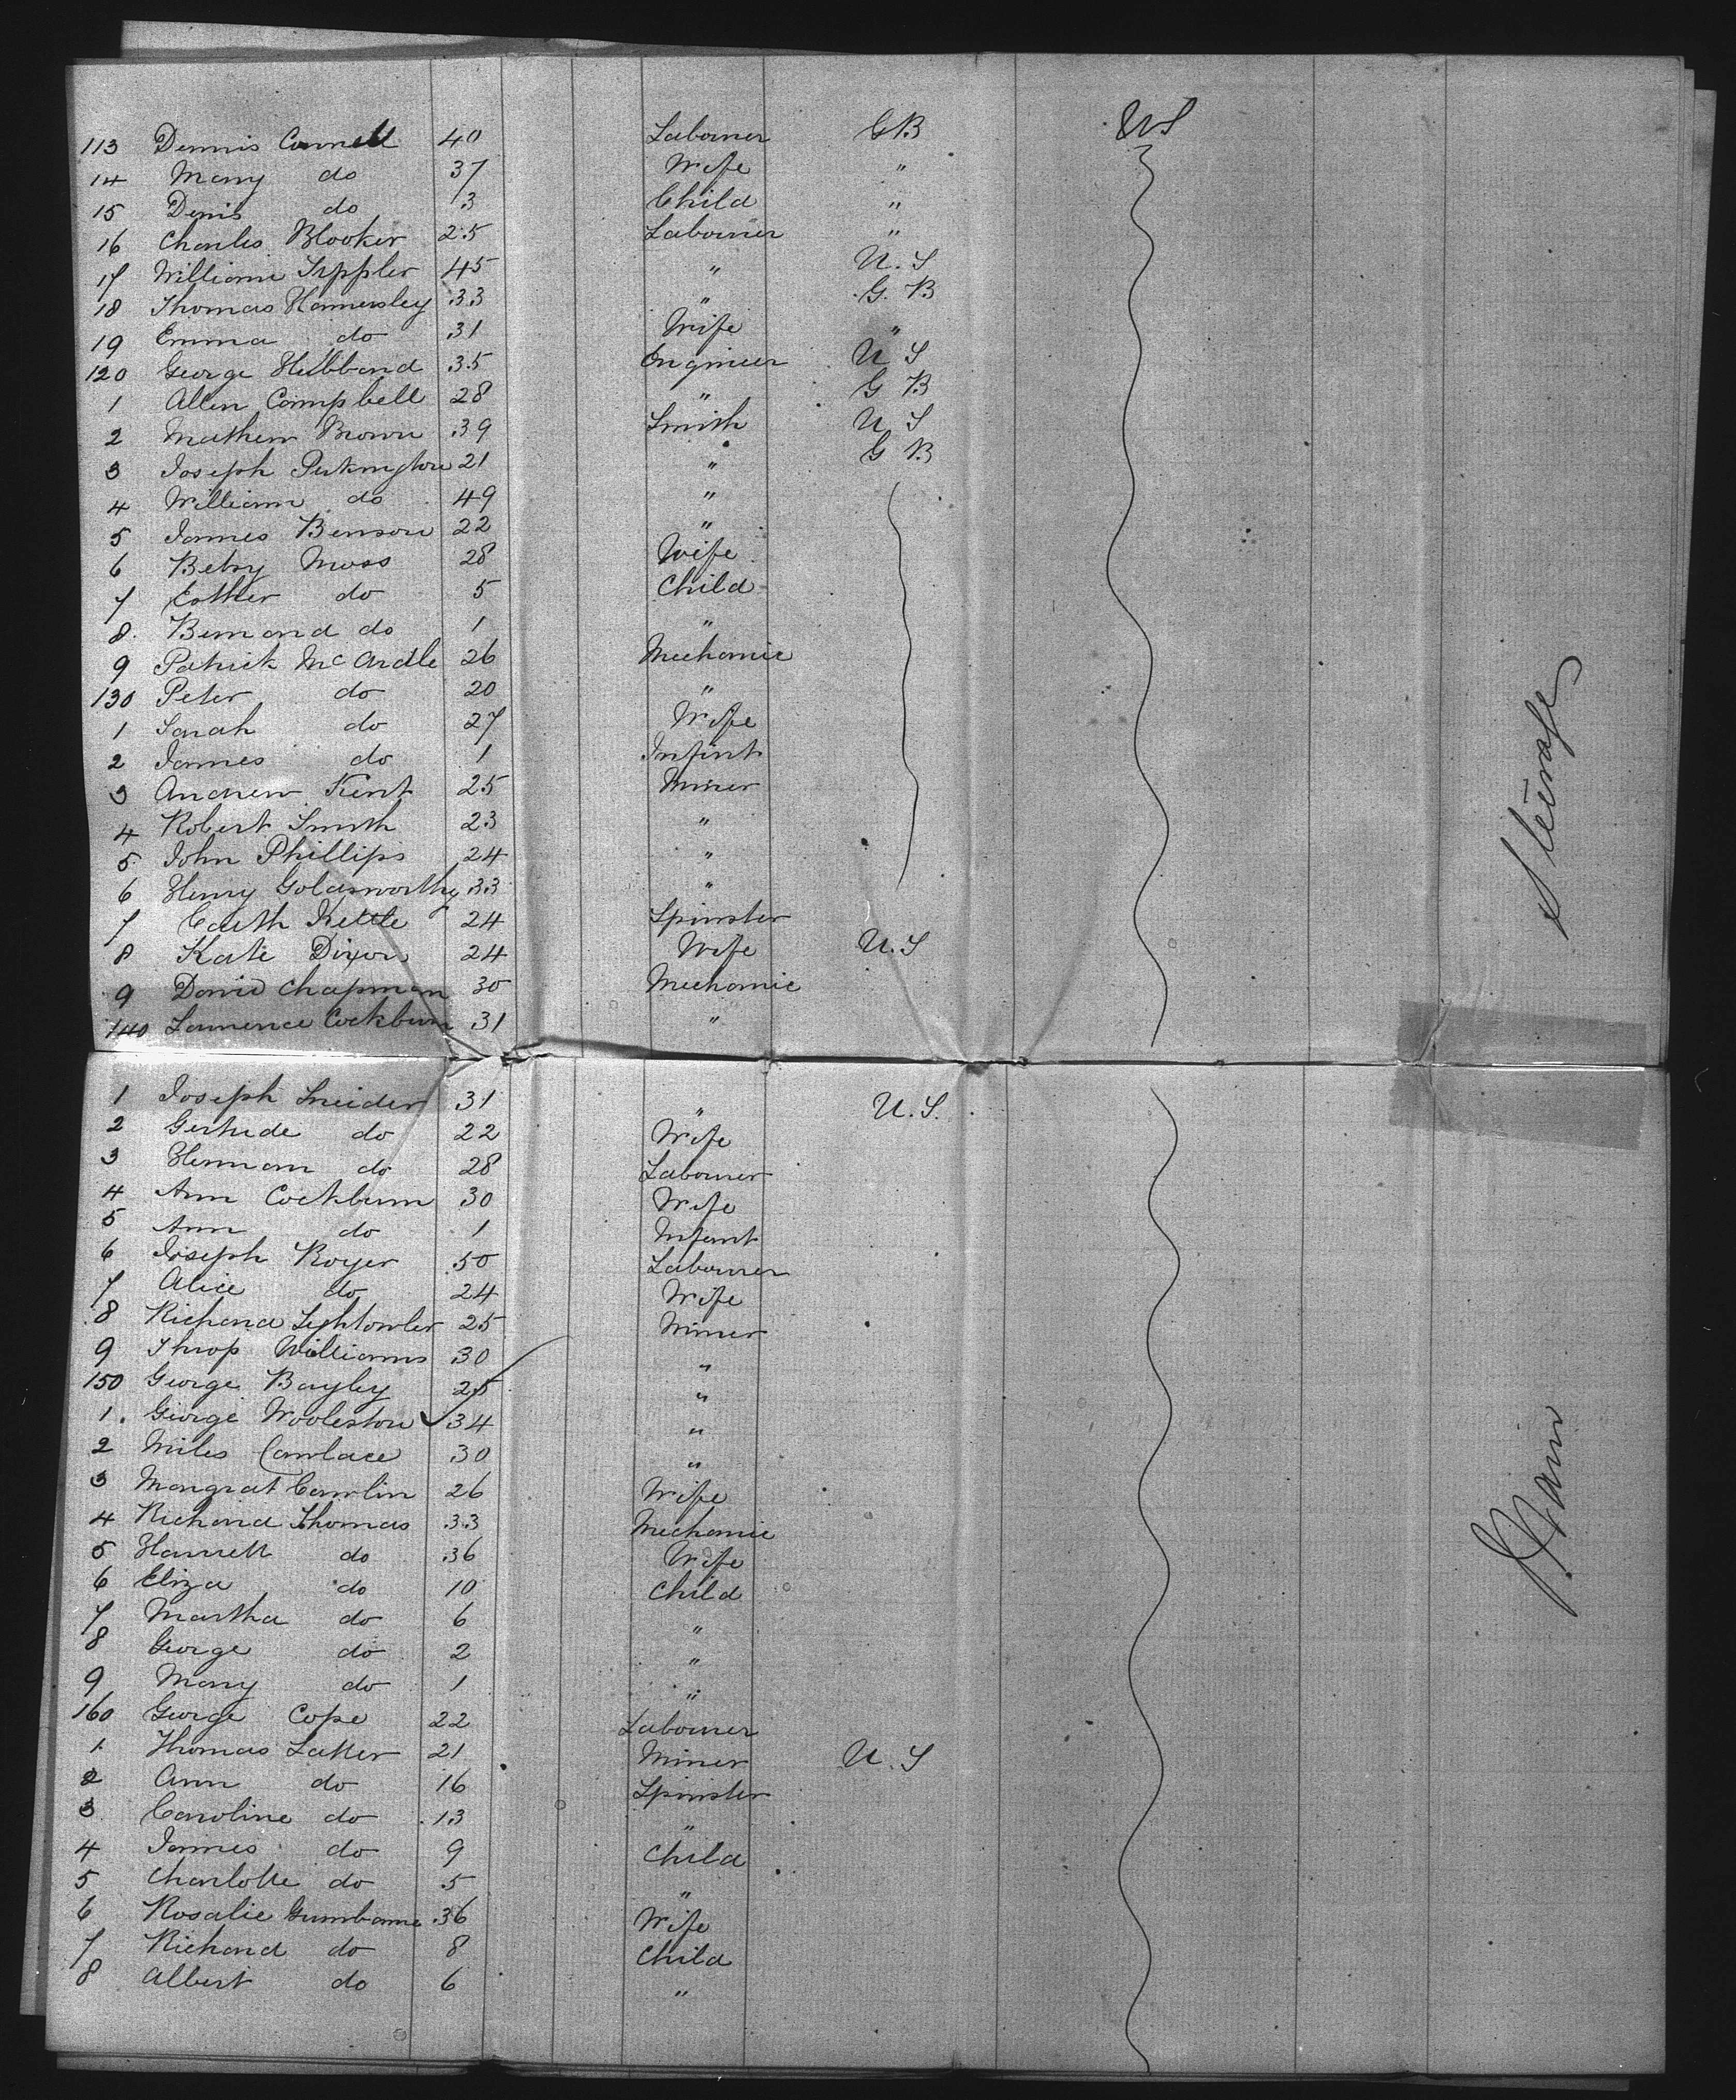 113 Dennis Connell 40 Labourer GB US
14 Mary do 37 Wife "
15 Denis do 3 Child "
16 Charles Blooker 25 Labourer "
17 William Tippler 45 " U.S
18 Thomas Hamersley 33 " G.B
19 Emma do 31 Wife "
120 George Hubbard 35 Engineer U S
1 Allen Campbell 28 " G B
2 Mathew Brown 39 Smith U S
3 Joseph 21 " G B
4 William do 49 "
5 James Benson 22 "
6 Betsy Moss 28 Wife
7 Esther do 5 Child
8 Bernard do 1 "
9 Patrick McArdle 26 Mechanic
130 Peter do 20 "
1 Sarah do 27 Wife
2 James do 1 Infant
3 Andrew Kent 25 Miner
4 Robert Smith 23 "
5 John Phillips 24 "
6 Henry Goldsworthy 33 "
7 Kettle 24 Spinster
8 Kate Dixon 24 Wife U.S
9 David Chapman 30 Mechanic
140 Laurence Cockburn 31 "
1 Joseph Sneider 31 " U.S.
2 Gertrude do 22 Wife
3 Herman do 28 Labourer
4 Ann Cockburn 30 Wife
5 Ann do 1 Infant
6 Joseph Royer 50 Labourer
7 Alice do 24 Wife
8 Richard Lightowler 25 Miner
9 Throp Williams 30 "
150 George Bayley 25 "
1 George Wooleston 34 "
2 Miles 30 "
3 Margrat Cawlin 26 Wife
4 Richard Thomas 33 Mechanic
5 Harriett do 36 Wife
6 Eliza do 10 Child
7 Martha do 6 "
8 George do 2 "
9 Mary do 1 "
160 George Cope 22 Labourer
1 Thomas Latter 21 Miner U.S
2 Ann do 16 Spinster
3 Caroline do 13 "
4 James do 9 Child
5 Charlotte do 5 "
6 Rosalie 36 Wife
7 Richard do 8 Child
8 Albert do 6 "
Steerage